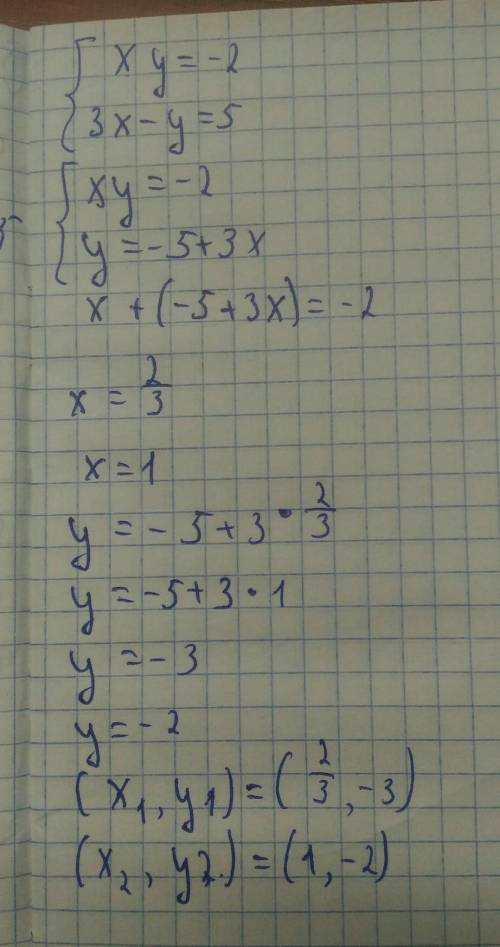 { x y = -2
3x - y = 5
{ xy = -2
y = -5 + 3x
x + (-5 + 3x) = -2
x = 2/3
x = 1
y = -5 + 3 · 2/3
y = -5 + 3 · 1
y = -3
y = -2
(x₁, y₁) = (2/3, -3)
(x₂, y₂.) = (1, -2)